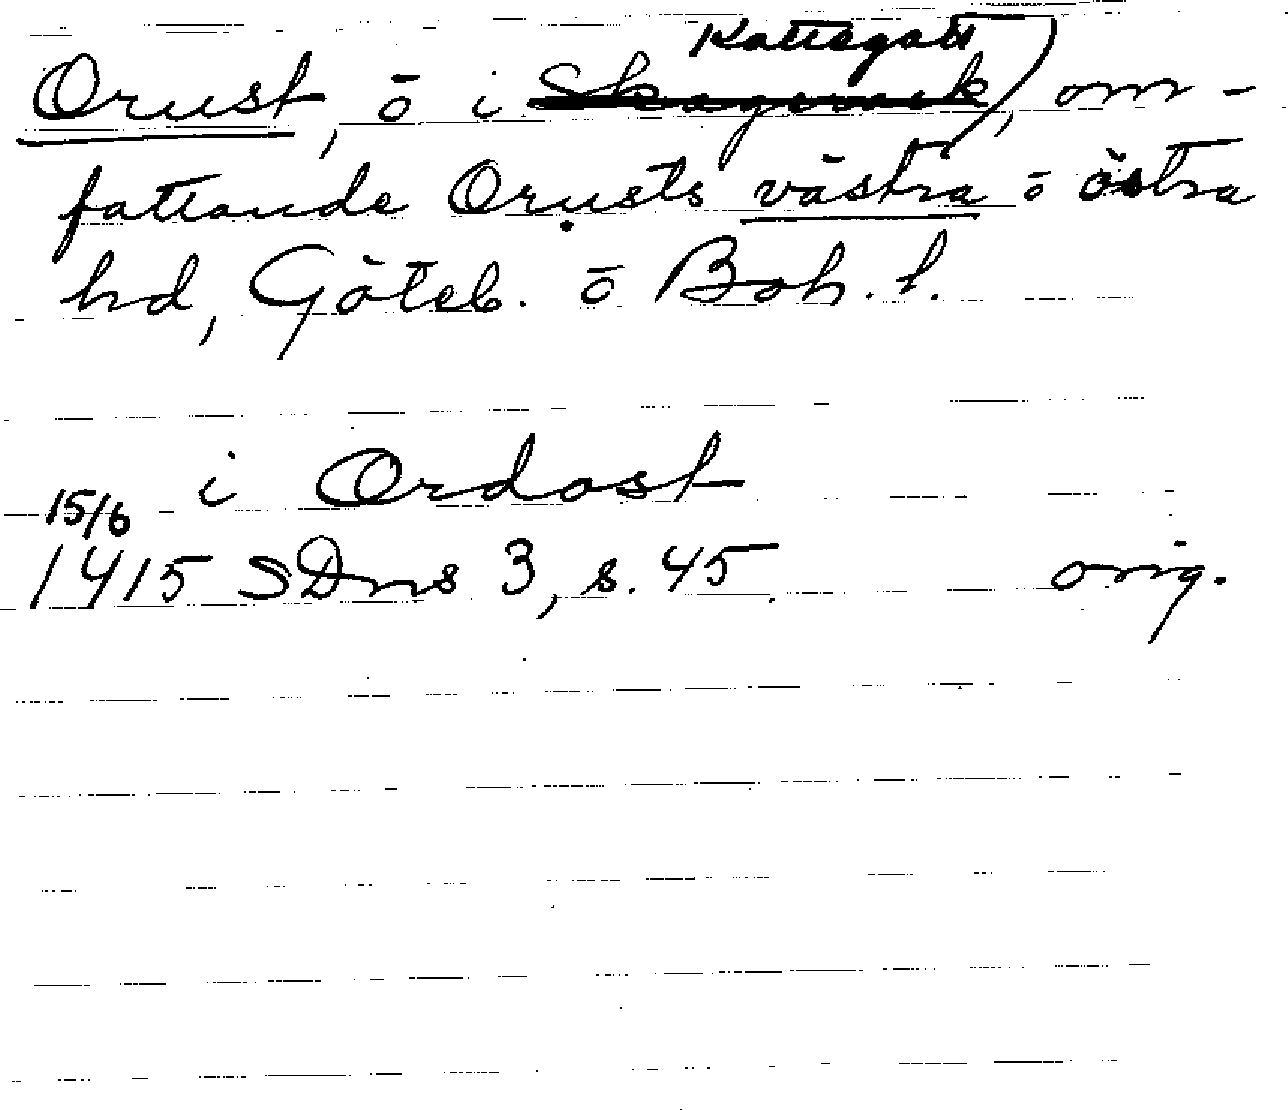 Kattegatt
Orust, ö i Skagerack, om-
fattande Orusts västra o östra
hd, Göteb. o Boh. l.
i Ordost
15/6
1415 SDns 3, s. 45 orig.